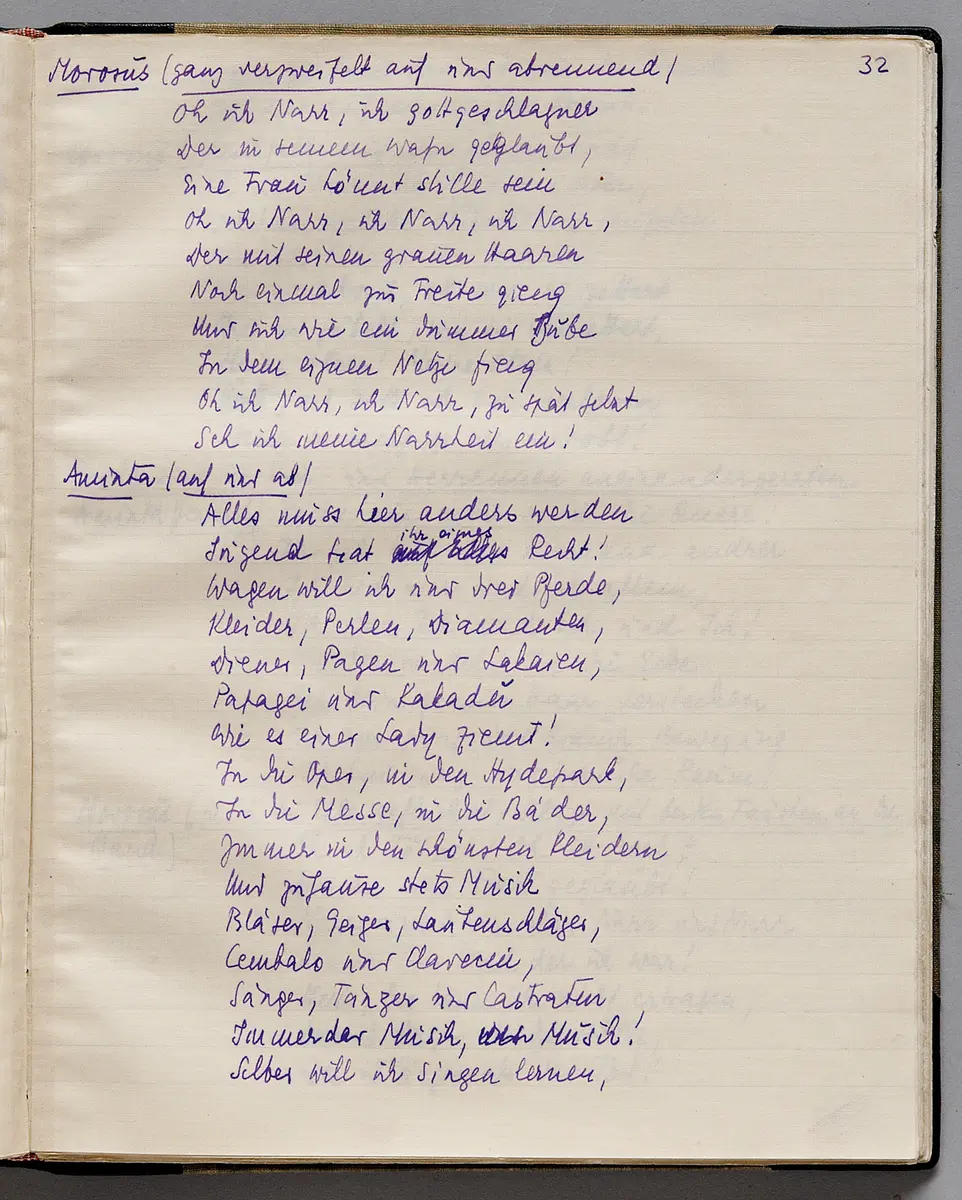 Morosus (ganz verzweifelt auf und abrennend) 32
Oh ich Narr, ich gottgeschlagner
Der in seinem Wahn geglaubt,
Eine Frau könnt stille sein
Oh ich Narr, ich Narr, ich Narr,
Der mit seinen grauen Haaren
Noch einmal zu Freite gieng
Und sich wie ein dummer Bube
In dem eignen Netze fieng
Oh ich Narr, ich Narr, zu spät sehnt
Seh ich meine Narrheit ein!
Aminta (auf und ab)
Alles muss hier anders werden
Jugend hat ihr eignes Recht!
Wagen will ich und drei Pferde,
Kleider, Perlen, Diamanten,
Diener, Pagen und Lakaien,
Papagei und Kakadu
Wie es einer Lady ziemt!
In die Oper, in den Hydepark,
In die Messe, in die Bäder,
Immer in den schönsten Kleidern
Und zuhause stets Musik
Bläser, Geiger, Lautenschläger,
Cembalo und Clavecin,
Sänger, Tänzer und Castraten
Immerdar Musik, Musik!
Selber will ich singen lernen,